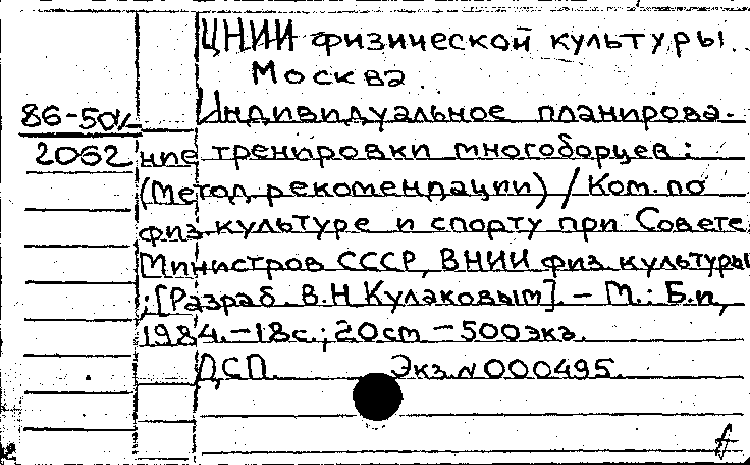 ЦНИИ физической культуры
Москва
Индивидуальное планирова-
86-50/
2062 ние тренировки многоборцев:
(Метод рекомендации) / Ком. по
физ. культуре и спорту при Совете
Министров СССР, ВНИИ физ. культуры
; [Разраб. В.Н Кулаковым]. – М.: Б.и,
1984. – 18с.; 20см – 500экз.
ДСП. Экз. N 000495.